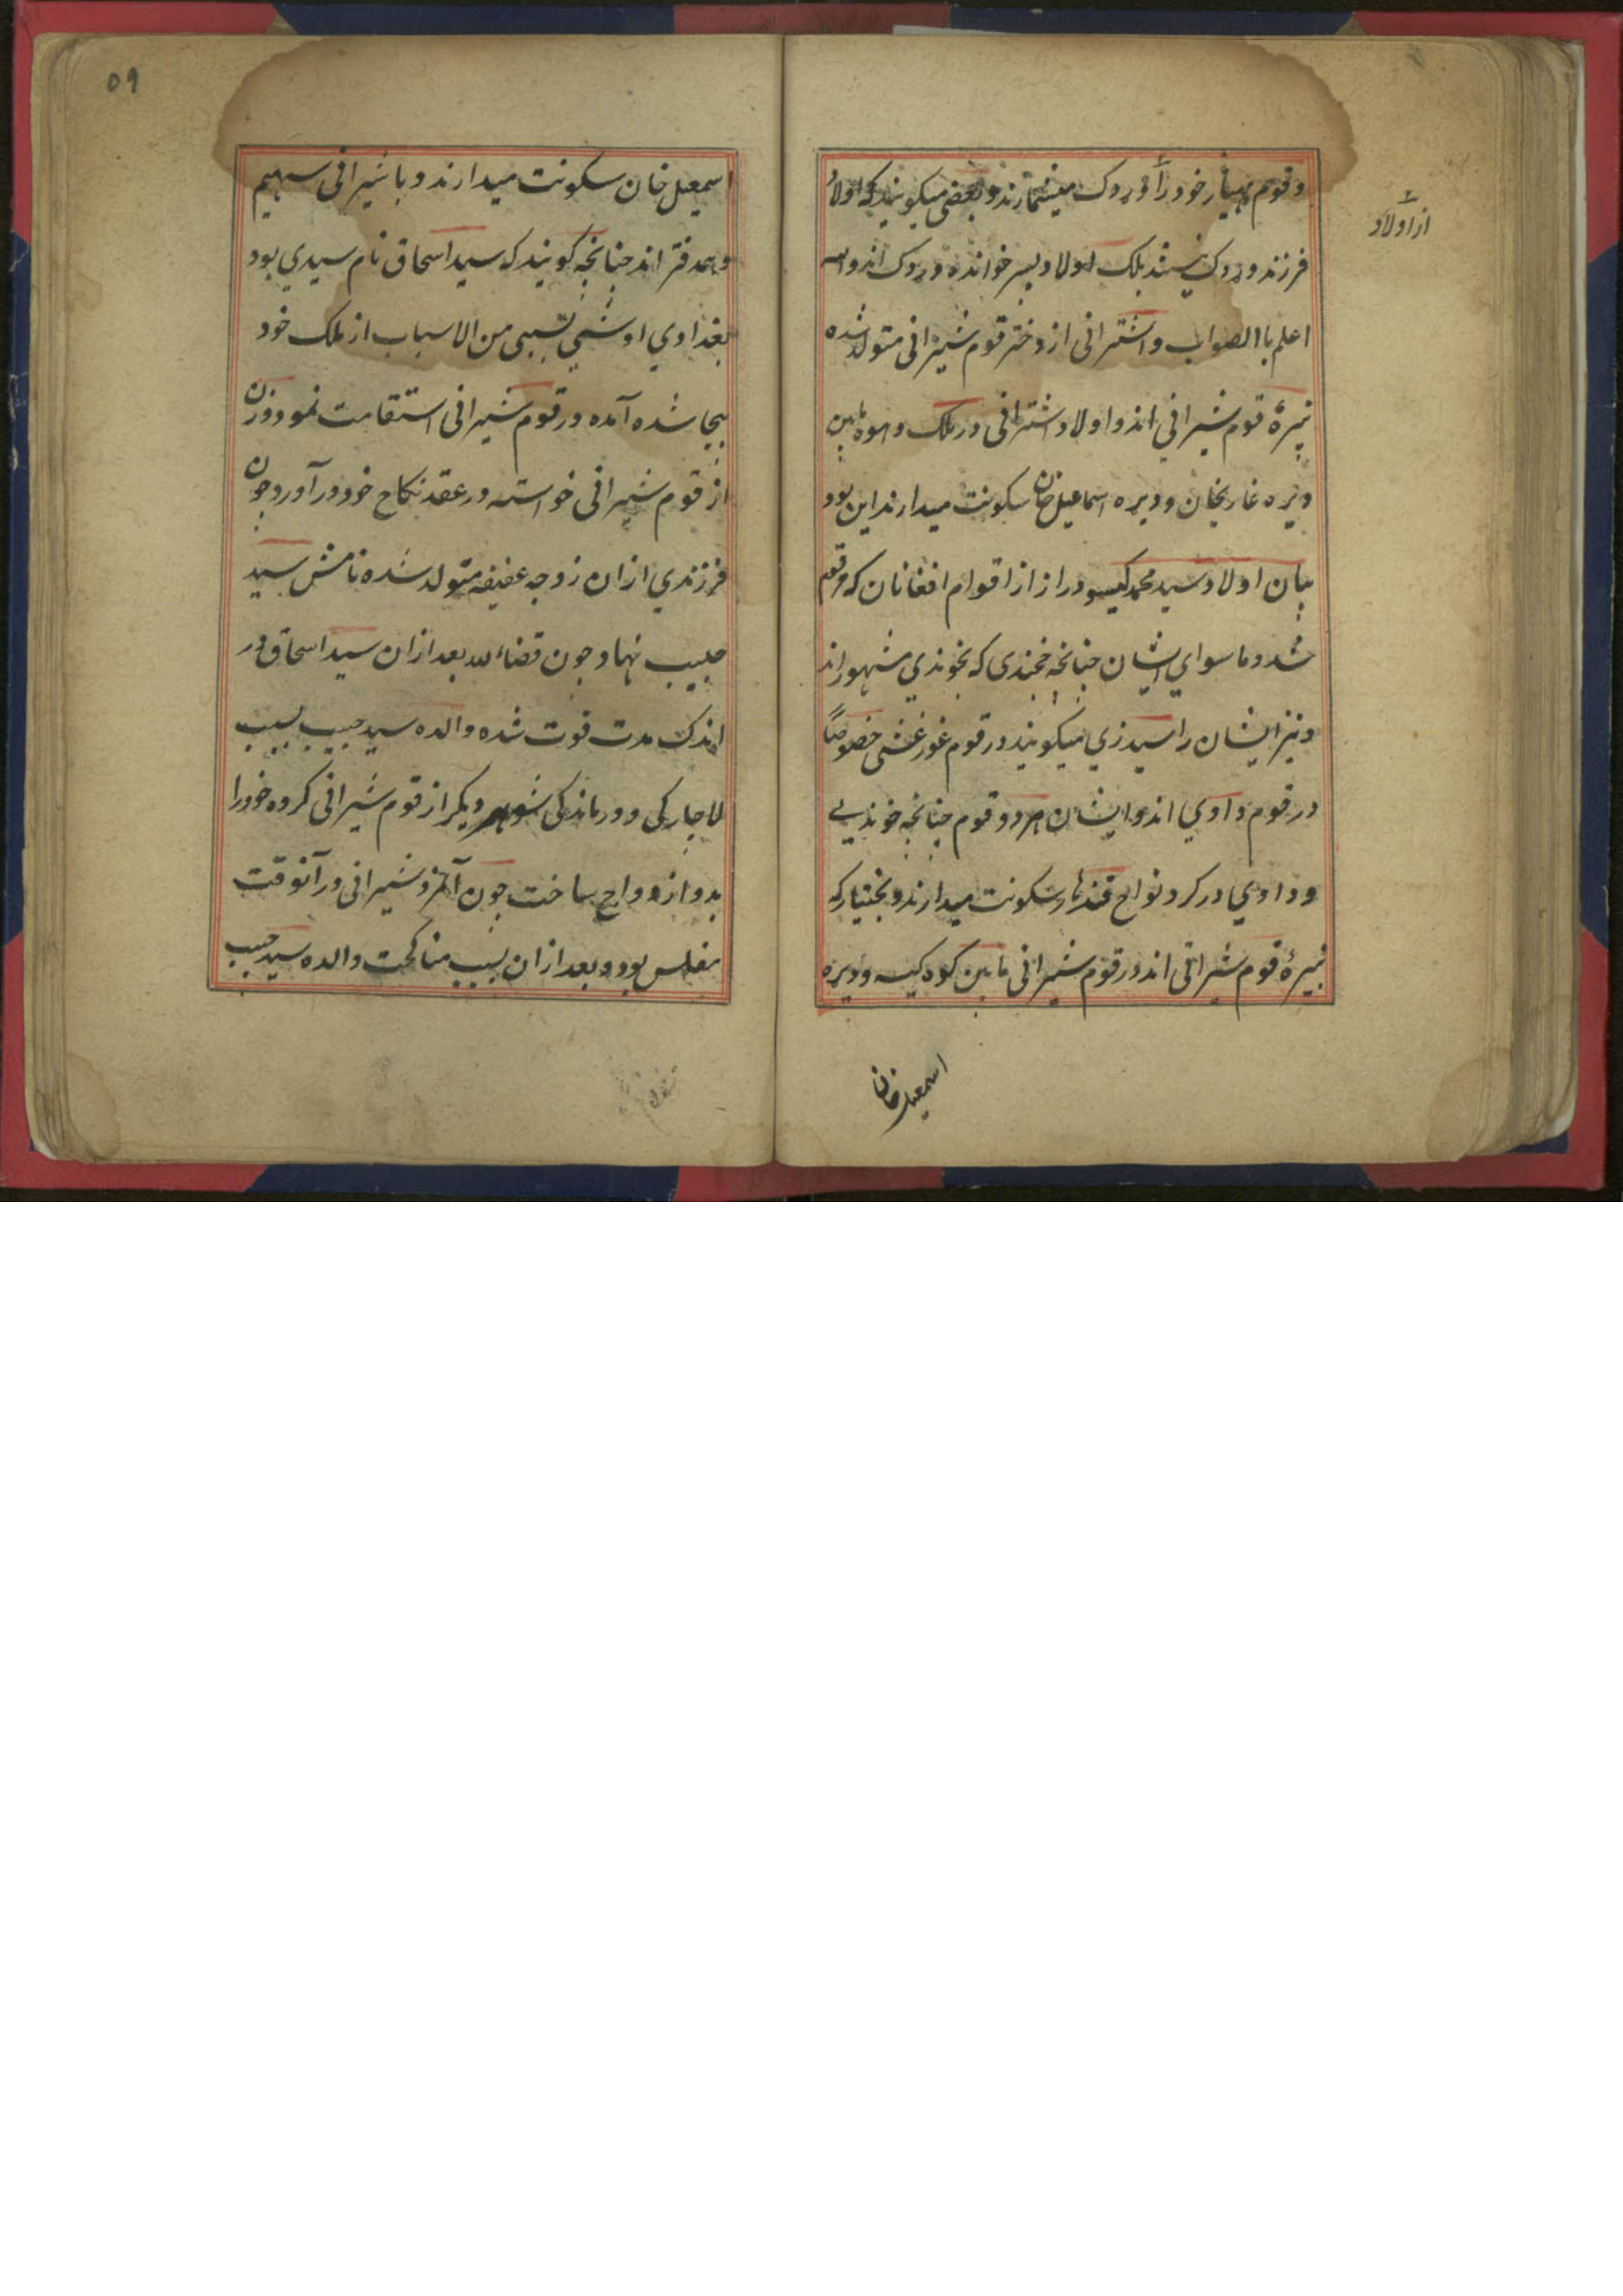 و قوم هنیار خود را وردک میشمارند و بعضی میکویند که اولاد
از اولاد
فرزند وردک نیستند بلک اولاد پسر خوانده وردک اند والله
اعلم باالصواب واشترانی از دختر قوم شیرانی متولد شده
نبیرهٔ قوم شیرانی اند و اولاد اشترانی در ملک دهوه مابین
دیره غازیخان و دیره اسماعیل خان سکونت میدارند این بود
بیان اولاد سید محمد کیسو دراز از اقوام افغانان که مرقوم
شد و ما سوای ایشان جنانچه خجندی که بخوندی مشهور اند
و نیز ایشان را سیدزی میکویند در قوم غورغشتی خصوصًا
در قوم داوی اند و ایشان هر دو قوم جنانچه خوندی
و داوی در کرد نواح قندهار سکونت میدارند و بختیار که
نبیرهٔ قوم شیرانی اند در قوم شیرانی مابین کوه کیسه و دیره
اسمعیل خان
٥٩
اسمعیل خان سکونت میدارند و با شیرانی سهیم
و همدفتر اند جنانچه کویند که سید اسحاق نام سیدی بود
بغدادی اوشی بسببی من الاسباب از ملک خود
بیجا شده آمده در قوم شیرانی استقامت نمود و زن
از قوم شیرانی خواسته در عقد نکاح خود در آورد و جون
فرزندی ازان زوجه عفیفه متولد شده نامش سید
حبیب نهاد جون قضاء لله بعد ازان سید اسحاق در
اندک مدت فوت شده والده سید حبیب بسبب
لاجارکی و درماندکی شوهر دیکر از قوم شیرانی کرده خود را
بدو ازدواج ساخت جون آنمرد شیرانی در آنوقت
مفلس بود و بعد ازان بسبب مناکحت والده سید حبیب